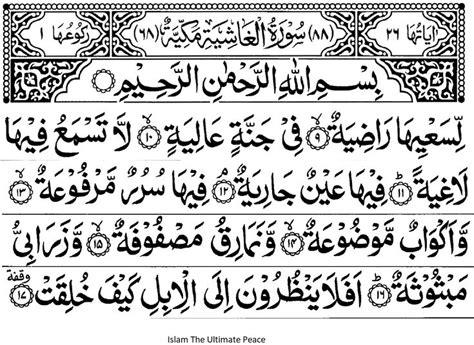 اٰيَاتُهَا ٢٦ (٨٨) سُوْرَةُ الْغَاشِيَةِ مَكِّيَّةٌ (٦٨) رُكُوْعُهَا ١
بِسْمِ اللّٰهِ الرَّحْمٰنِ الرَّحِيْمِ
لِّسَعْيِهَا رَاضِيَةٌ ۙ٩ فِيْ جَنَّةٍ عَالِيَةٍ ۙ١٠ لَّا تَسْمَعُ فِيْهَا
لَاغِيَةً ؕ١١ فِيْهَا عَيْنٌ جَارِيَةٌ ۘ١٢ فِيْهَا سُرُرٌ مَّرْفُوْعَةٌ ۙ١٣
وَّاَكْوَابٌ مَّوْضُوْعَةٌ ۙ١٤ وَّنَمَارِقُ مَصْفُوْفَةٌ ۙ١٥ وَّزَرَابِيُّ
مَبْثُوْثَةٌ ؕ١٦ اَفَلَا يَنْظُرُوْنَ اِلَى الْاِبِلِ كَيْفَ خُلِقَتْ وقفة ١٧
Islam The Ultimate Peace